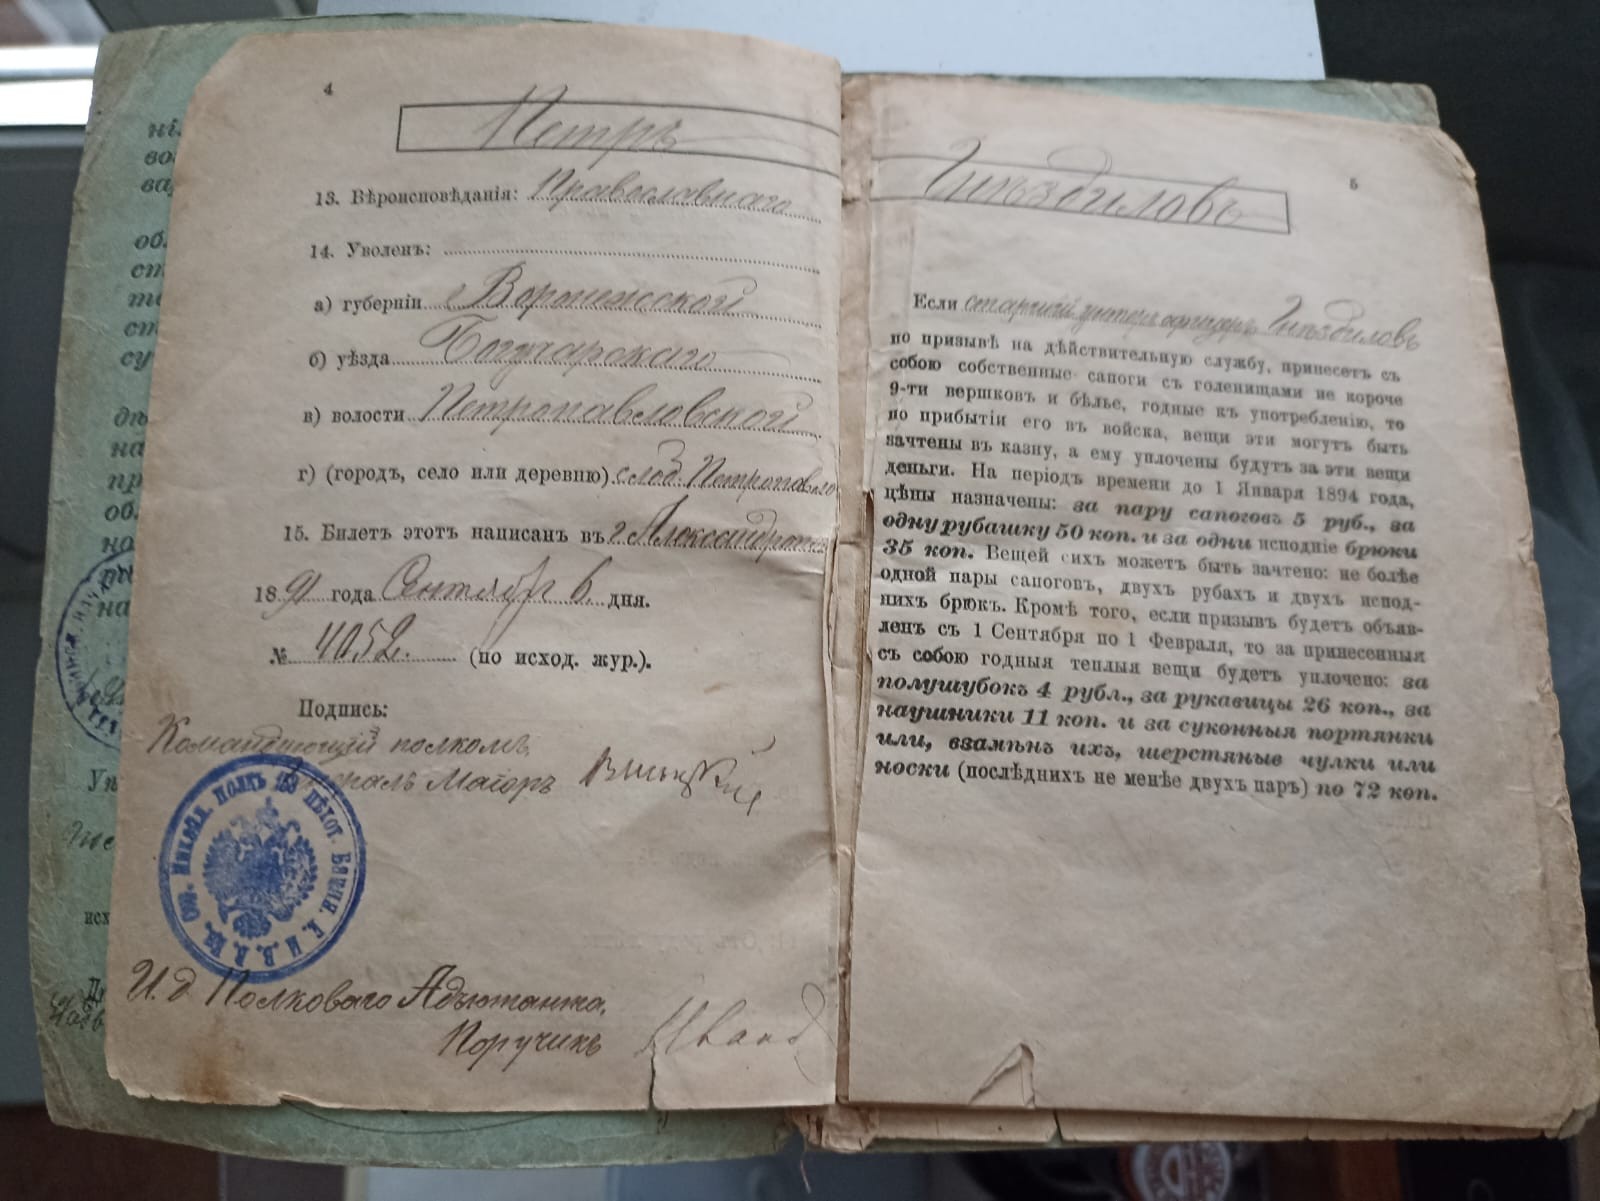 4
Петръ
13. Вѣроисповѣданія: Православнаго
14. Уволенъ:
а) губерніи Воронежской
б) уѣзда Богучарскаго
в) волости Петропавловской
г) (городъ, село или деревню) слоб. Петропавло
15. Билетъ этотъ написанъ въ г. Александрополѣ
1891 года Сентября 6 дня.
№ 4052. (по исход. жур.).
Подпись:
Командующій полкомъ,
Генералъ Маіоръ
И. д. Полковаго Адъютанта,
Поручикъ
153 пѣхот. Бакин. Е. И. В. В. Кн. Полкъ
5
Гнѣздиловъ
Если старшій унтеръ офицеръ Гнѣздиловъ
по призывѣ на дѣйствительную службу, принесетъ съ
собою собственные сапоги съ голенищами не короче
9-ти вершковъ и бѣлье, годные къ употребленію, то
по прибытіи его въ войска, вещи эти могутъ быть
зачтены въ казну, а ему уплочены будутъ за эти вещи
деньги. На періодъ времени до 1 Января 1894 года,
цѣны назначены: за пару сапоговъ 5 руб., за
одну рубашку 50 коп. и за одни исподніе брюки
35 коп. Вещей сихъ можетъ быть зачтено: не болѣе
одной пары сапоговъ, двухъ рубахъ и двухъ испод-
нихъ брюкъ. Кромѣ того, если призывъ будетъ объяв-
ленъ съ 1 Сентября по 1 Февраля, то за принесенныя
съ собою годныя теплыя вещи будетъ уплочено: за
полушубокъ 4 рубл., за рукавицы 26 коп., за
наушники 11 коп. и за суконныя портянки
или, взамѣнъ ихъ, шерстяные чулки или
носки (послѣднихъ не менѣе двухъ паръ) по 72 коп.